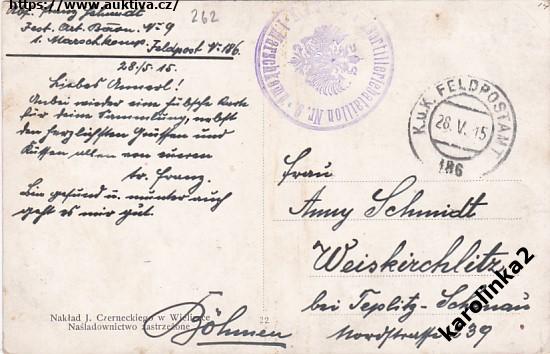 https://www.auktiva.cz/
Abs. Franz Schmidt
Fest. Art. Baon. No 9
1. Marschkomp. Feldpost No 186
262
28./5. 15.
Liebes Annerl!
Anbei wieder eine hübsche Karte
für deine Sammlung, nebst
den herzlichsten Grüssen und
Küssen allen von euren
tr. Franz.
Bin gesund u. munter auch
geht es mir gut.
Nakład J. Czerneckiego w Wieliczce
Naśladownictwo zastrzeżone.
22
K.u.K. FELDPOSTAMT
28. V. 15
186
Frau
Anny Schmidt
Weiskirchlitz
bei Teplitz-Schönau
Nordstrasse 39
Böhmen
karolinka2